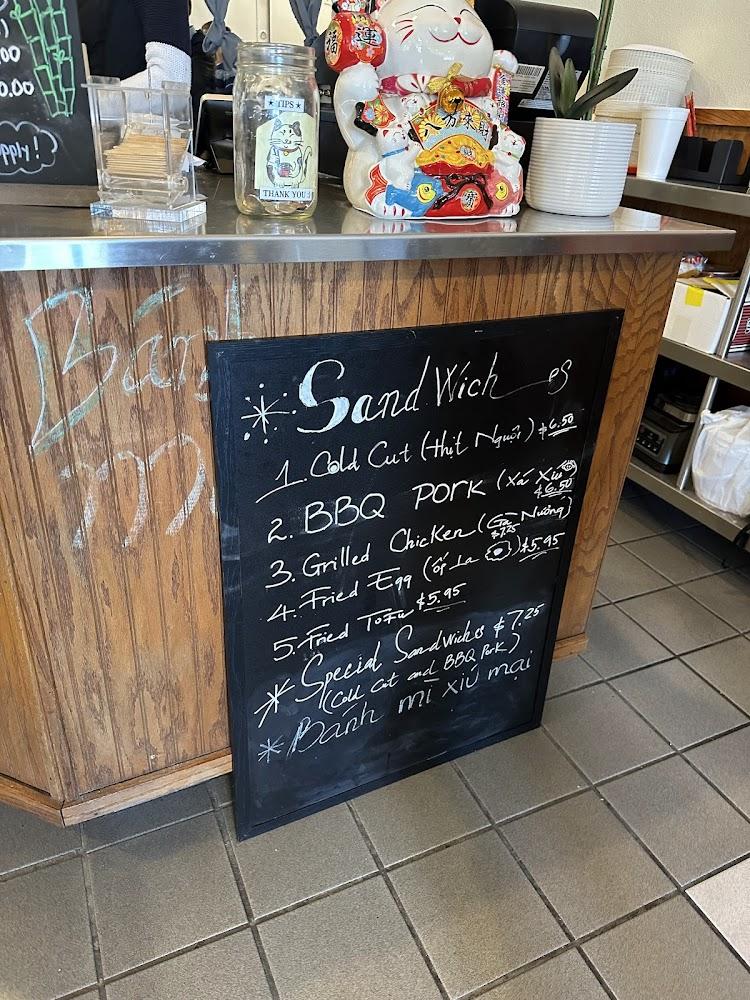 00
0.00
pply!
★ TIPS ★
THANK YOU
福
運
八方來財
Bánh
mì
Sandwich es
1. Cold Cut (thịt Nguội) $6.50
2. BBQ Pork (xá xíu) $6.50
3. Grilled Chicken (Gà Nướng) $7.25
4. Fried Egg (ốp La) $5.95
5. Fried Tofu $5.95
Special Sandwiches $7.25
(Cold Cut and BBQ Pork)
Bánh mì xíu mại